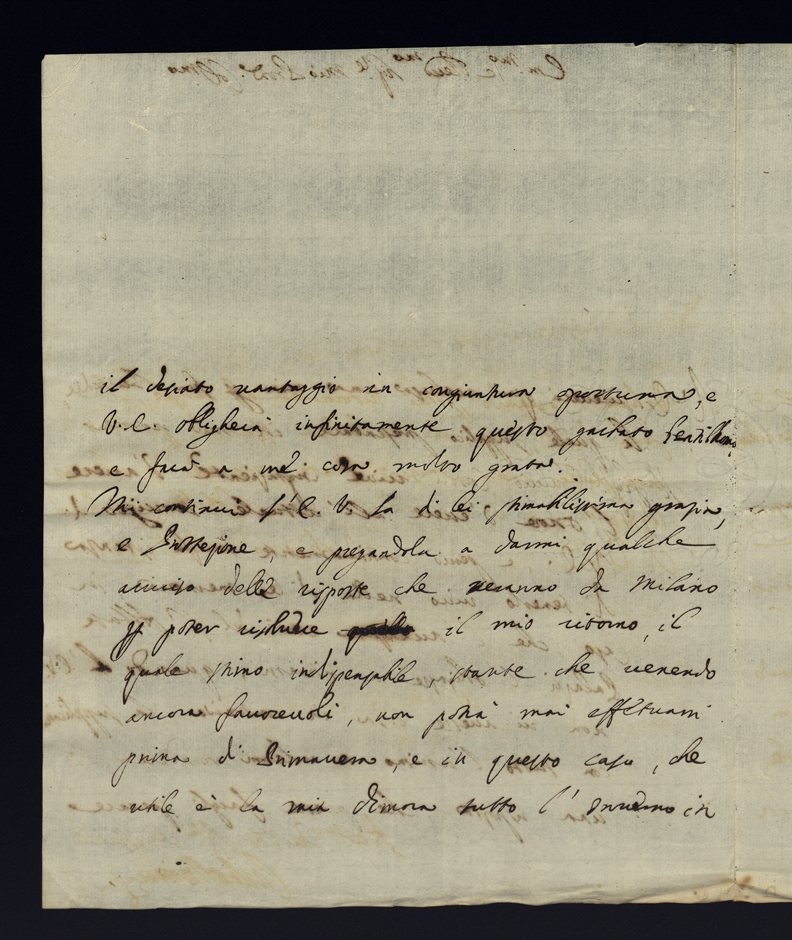 il desiato vantaggio in congiuntura oportuna, e
V. E. obligherà infinitamente questo garbato
e farà a me cosa molto grata.
Mi continui l'E. V. la di lei stimatilissima grazia,
e Prottezione, e pregandola a darmi qualche
aviso delle risposte che veranno da Milano
p poter risolvere il mio ritorno, il
quale stimo indispensabile, stante che venendo
ancora favorevoli, non potrà mai effettuarsi
prima di Primavera, e in questo caso, che
utile è la mia dimora tutto l'Inverno in